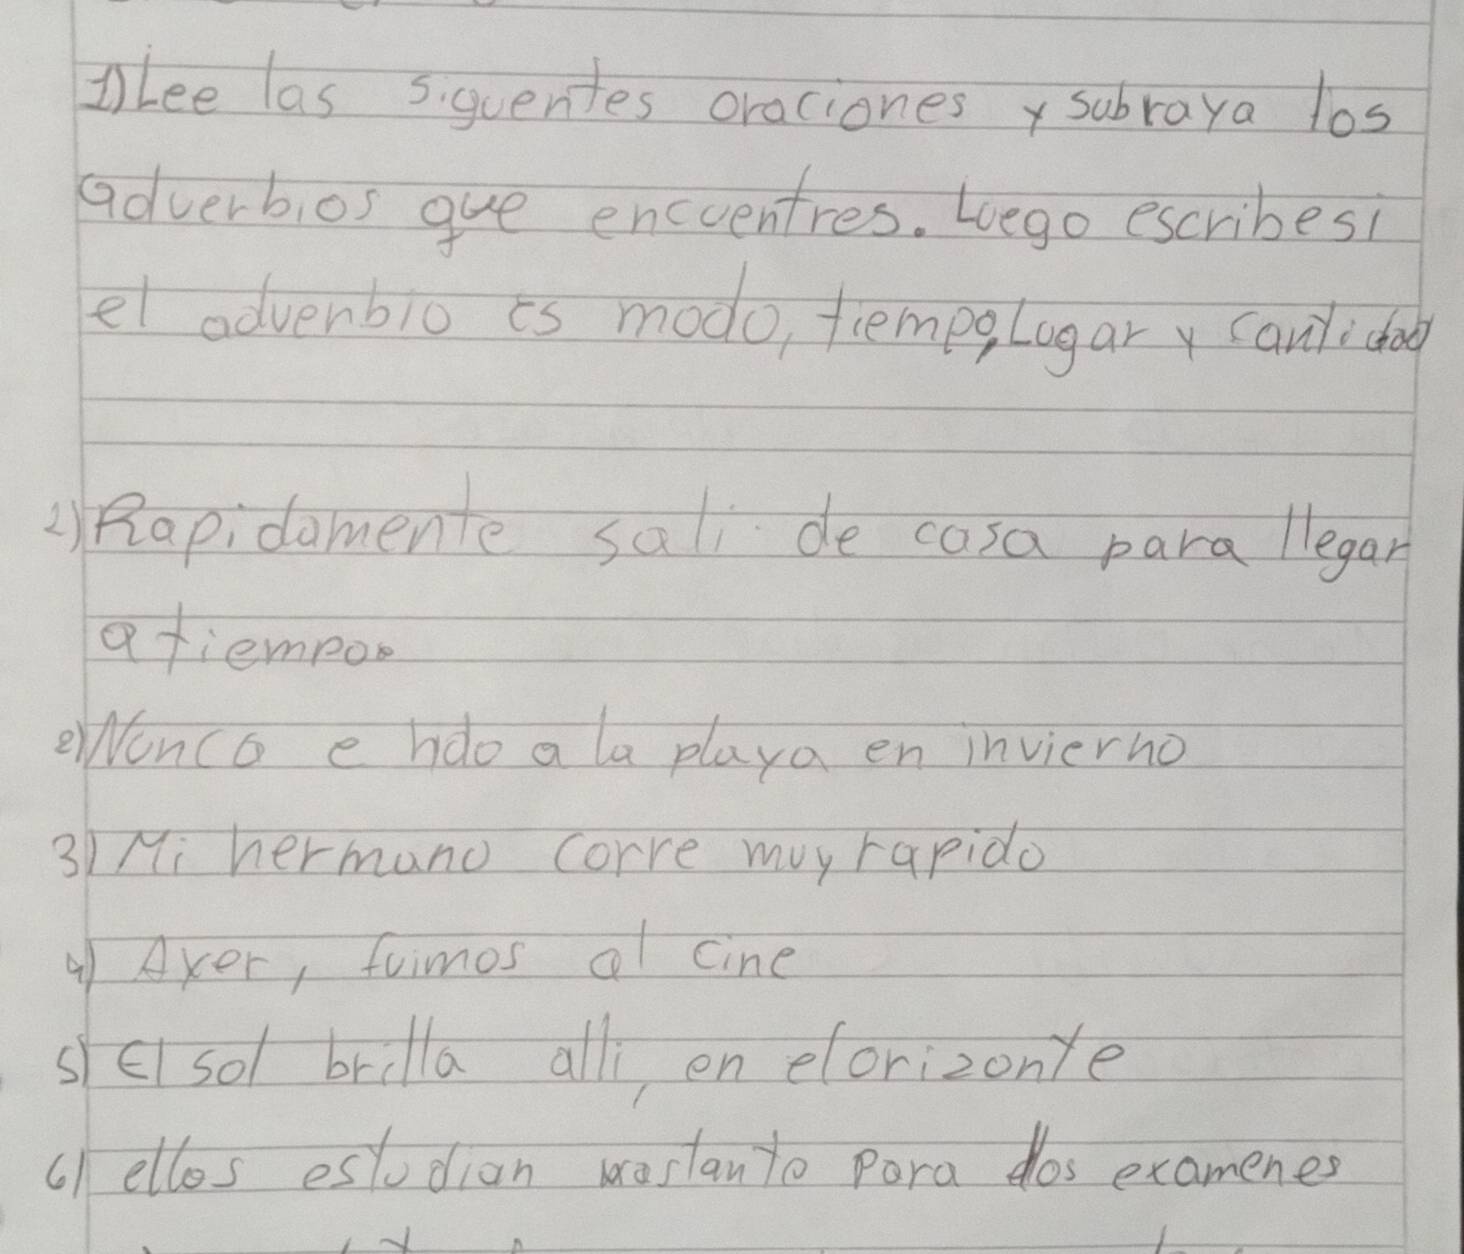 1) Lee las siguentes oraciones y subraya los
adverbios que encuentres. Luego escribe si
el advenbio es modo, tiempo, Lugar y cantidad
1) Rapidamente sali de casa para llegar
a tiempo.
2) Nunca e hdo a la playa en invierno
3) Mi hermano corre muy rapido
4) Ayer, fuimos al cine
5) El sol brilla alli, en el orizonte
6) ellos estudian para los examenes